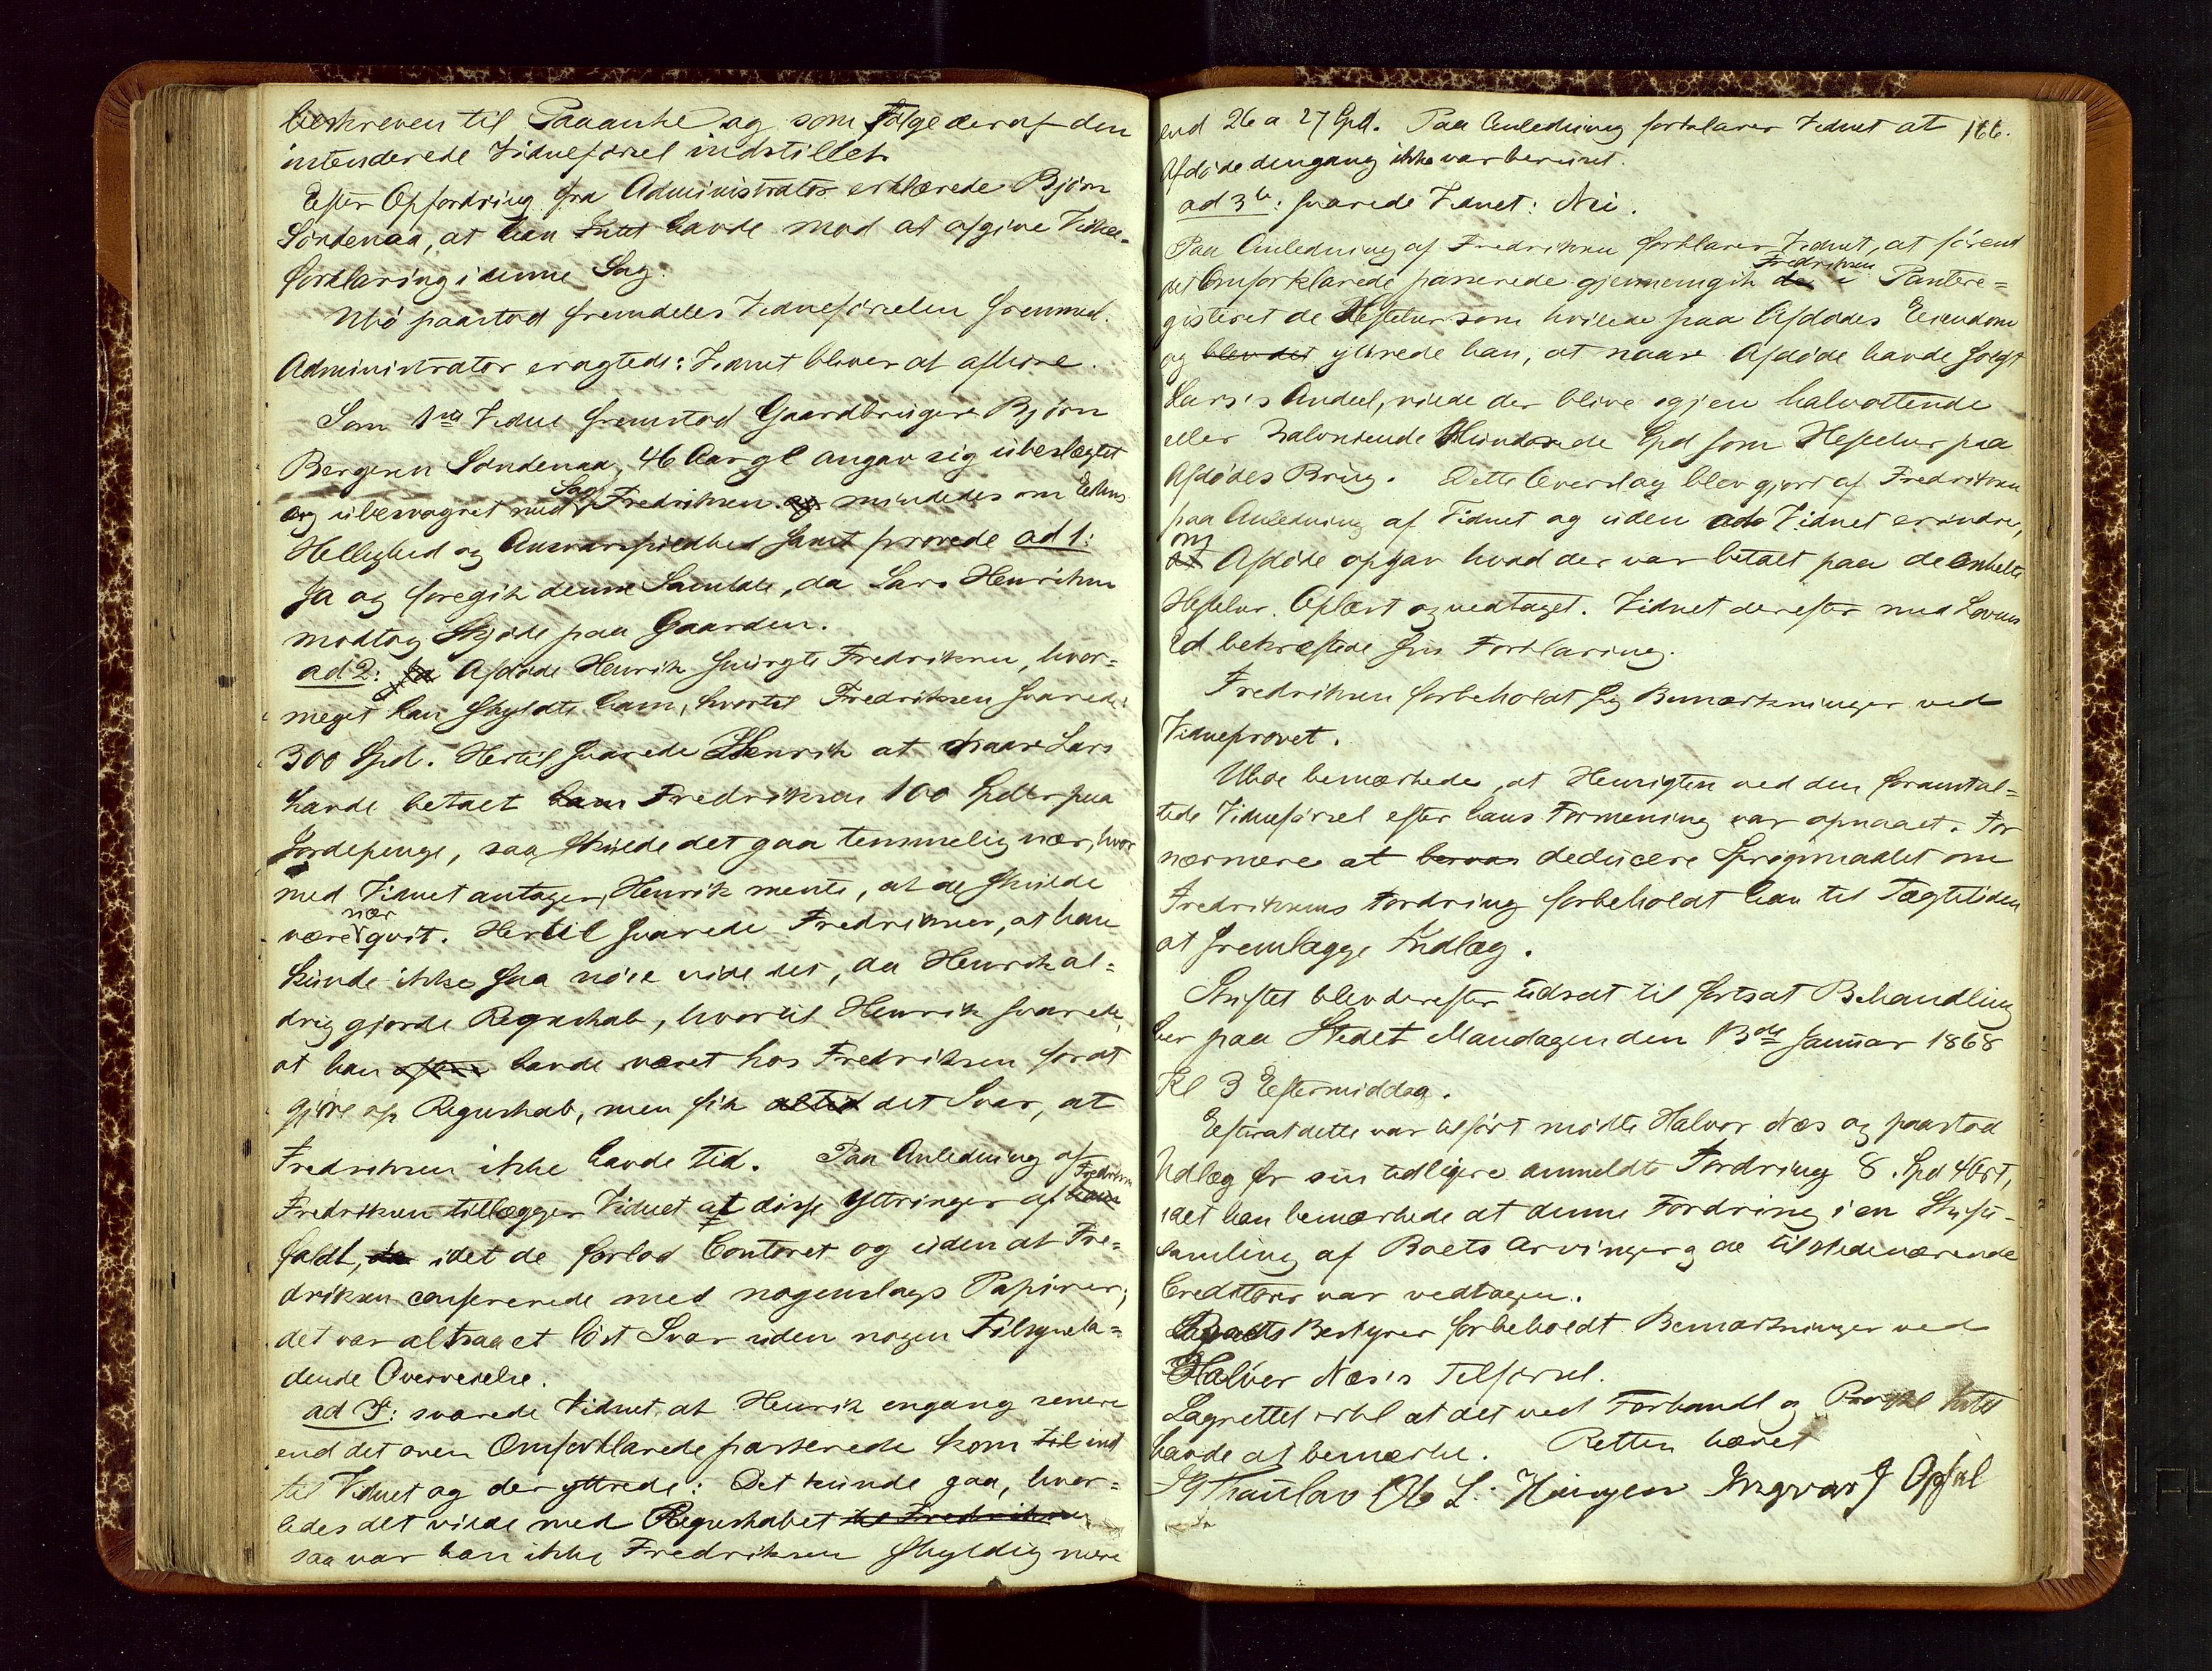 beskreven til Paaanke og som Følge deraf den
intenderede Vidneførsel indstillet.
Efter Opfordring fra Administrator erklærede Bjørn
Søndenaa, at han Intet havde mod at afgive Vidne-
forklaring i denne Sag.
Ubø paastod fremdeles Vidneførselen fremmed.
Administrator eragtede: Vidnet bliver at afhøre.
Som 1ste Vidne fremstod Gaardbruger Bjørn
Bergesen Søndenaa, 46 Aar gl angav sig ubeslægtet
og ubesvogret med Sagf Fredriksen. og mindedes om Edens
Hellighed og Ansvarspligthed samt prøvede ad 1:
Ja og foregik denne Samtale, da Lars Henriksen
modtog Skjøde paa Gaarden.
ad 2: Ja Afdøde Henrik spurgte Fredriksen, hvor=
meget han skyldte ham, hvortil Fredriksen svarede:
300 Spd. Hertil svarede Henrik at naar Lars
havde betalt ham Fredriksen 100 Spdlr paa
Jordepenge, saa skulde det gaa temmelig nær, hvor
med Vidnet antager, Henrik mente, at de skulde
være nær qvit. Hertil svarede Fredriksen, at han
kunde ikke saa nøie vide det, da Henrik al=
drig gjorde Regnskab, hvortil Henrik svarede,
at han ofte havde været hos Fredriksen for at
gjøre op Regnskab, men fik altid det Svar, at
Fredriksen ikke havde Tid. Paa Anledning af
Fredriksen tillægger Vidnet at disse Yttringer af ham Fredriksen
faldt, da idet de forlod Contoret og uden at Fre=
driksen confererede med nogenslags Papirer;
det var altsaa et løst Svar uden nogen Tilsynela=
dende Overveielse.
ad 3: svarede Vidnet at Henrik engang senere
end det oven Omforklarede passerede kom til ind
til Vidnet og der yttrede: Det kunde gaa, hvor=
ledes det vilde med Regnskabet til Fredriksen
saa var han ikke Fredriksen skyldig mere
end 26 a 27 Spd. Paa Anledning forklarer Vidnet at 166.
Afdøde dengang ikke var beruset.
ad 3: svarede Vidnet: Nei.
Paa Anledning af Fredriksen forklarer Vidnet, at førend
det Omforklarede passerede gjennemgik de Fredriksen i Pantere=
gisteret de Heftelser som hvilede paa Afdødes Eiendom
og blev det yttrede han, at naar Afdøde havde solgt
Lars's Andeel, vilde der blive igjen halvottende
eller halvniende Hundrede Spd som Heftelser paa
Afdødes Brug. Dette Overslag blev gjort af Fredriksen
paa Anledning af Vidnet og uden at Vidnet erindrer,
at om Afdøde opgav hvad der var betalt paa de enkelte
Heftelser. Oplæst og vedtaget. Vidnet derefter med Lovens
Ed bekræftede sin Forklaring.
Fredriksen forbeholdt sig Bemærkninger ved
Vidneprovet.
Ubøe bemærkede, at Hensigten ved den foranstal=
tede Vidneførsel efter hans Formening var opnaaet. For
nærmere at deducere Spørgsmaalet om
Fredriksens Fordring forbeholdt han til Tægtetiden
at fremlægge Indlæg.
Skiftet blev derefter udsat til fortsat Behandling
her paa Stedet Mandagen den 13de Januar 1868
Kl 3 Eftermiddag.
Efterat dette var tilført mødte Halvor Næs og paastod
Udlæg for sin tidligere anmeldte Fordring 8. Spd 4 Ort,
idet han bemærkede at denne Fordring i en Skifte-
samling af Boets Arvinger og de tilstedeværende
Creditorer var vedtagen.
Boets Bestyrer forbeholdt Bemærkninger ved
Halvor Næs's Tilførsel.
Lagrettet erkl at det ved Forhandl og Protkl Intet
havde at bemærke. Retten hævet
Ole L. Haugen Ingvar J Opsal